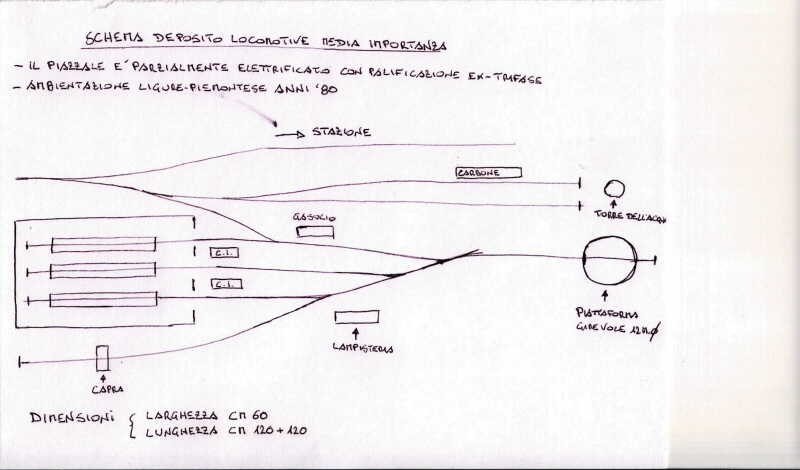 SCHEMA DEPOSITO LOCOMOTIVE MEDIA IMPORTANZA
- IL PIAZZALE E' PARZIALMENTE ELETTRIFICATO CON PALIFICAZIONE EX-TRIFASE
- AMBIENTAZIONE LIGURE-PIEMONTESE ANNI '80
→ STAZIONE
CARBONE
TORRE DELL'ACQU
GASOLIO
C.L.
C.L.
PIATTAFORMA
GIREVOLE 12MØ
LAMPISTERIA
CAPRA
DIMENSIONI { LARGHEZZA CM 60
LUNGHEZZA CM 120+120